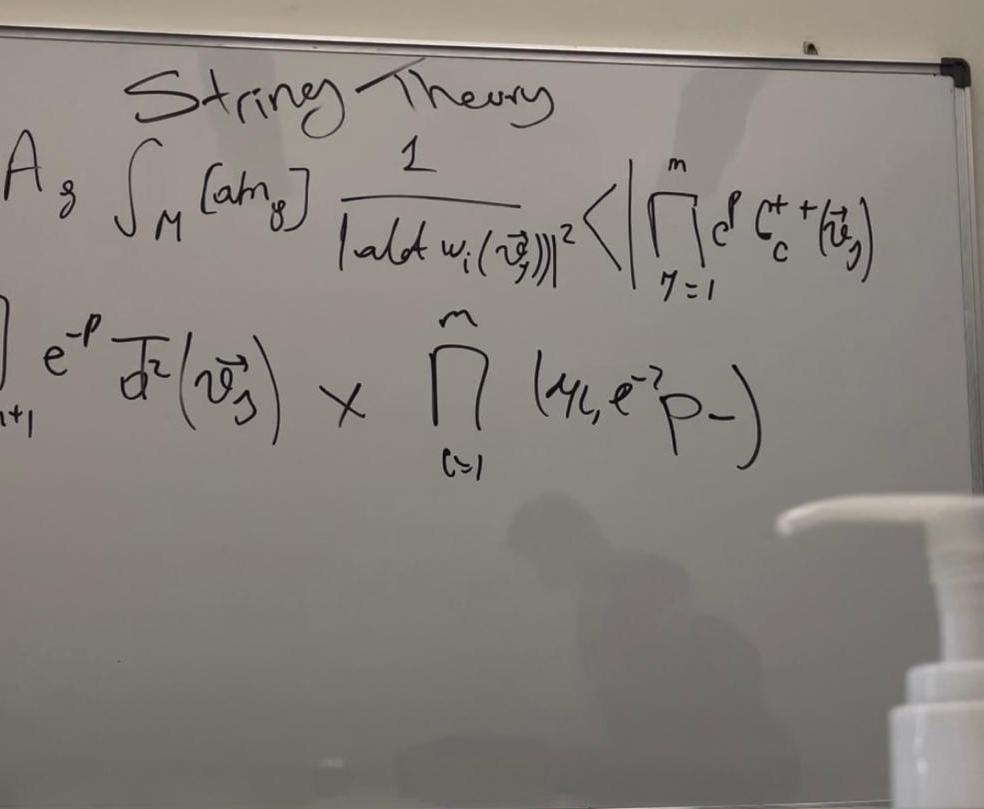 String Theory
A_g ∫_M [dm_g] 1/|det w_i(v⃗_j)|² <|∏_{i=1}^{m} e^ρ G_c^{++}(v⃗_j)
]_{n+1} e^{-ρ} d²(v⃗_j) × ∏_{i=1}^{m} (μ_i, e^{-2}ρ-)